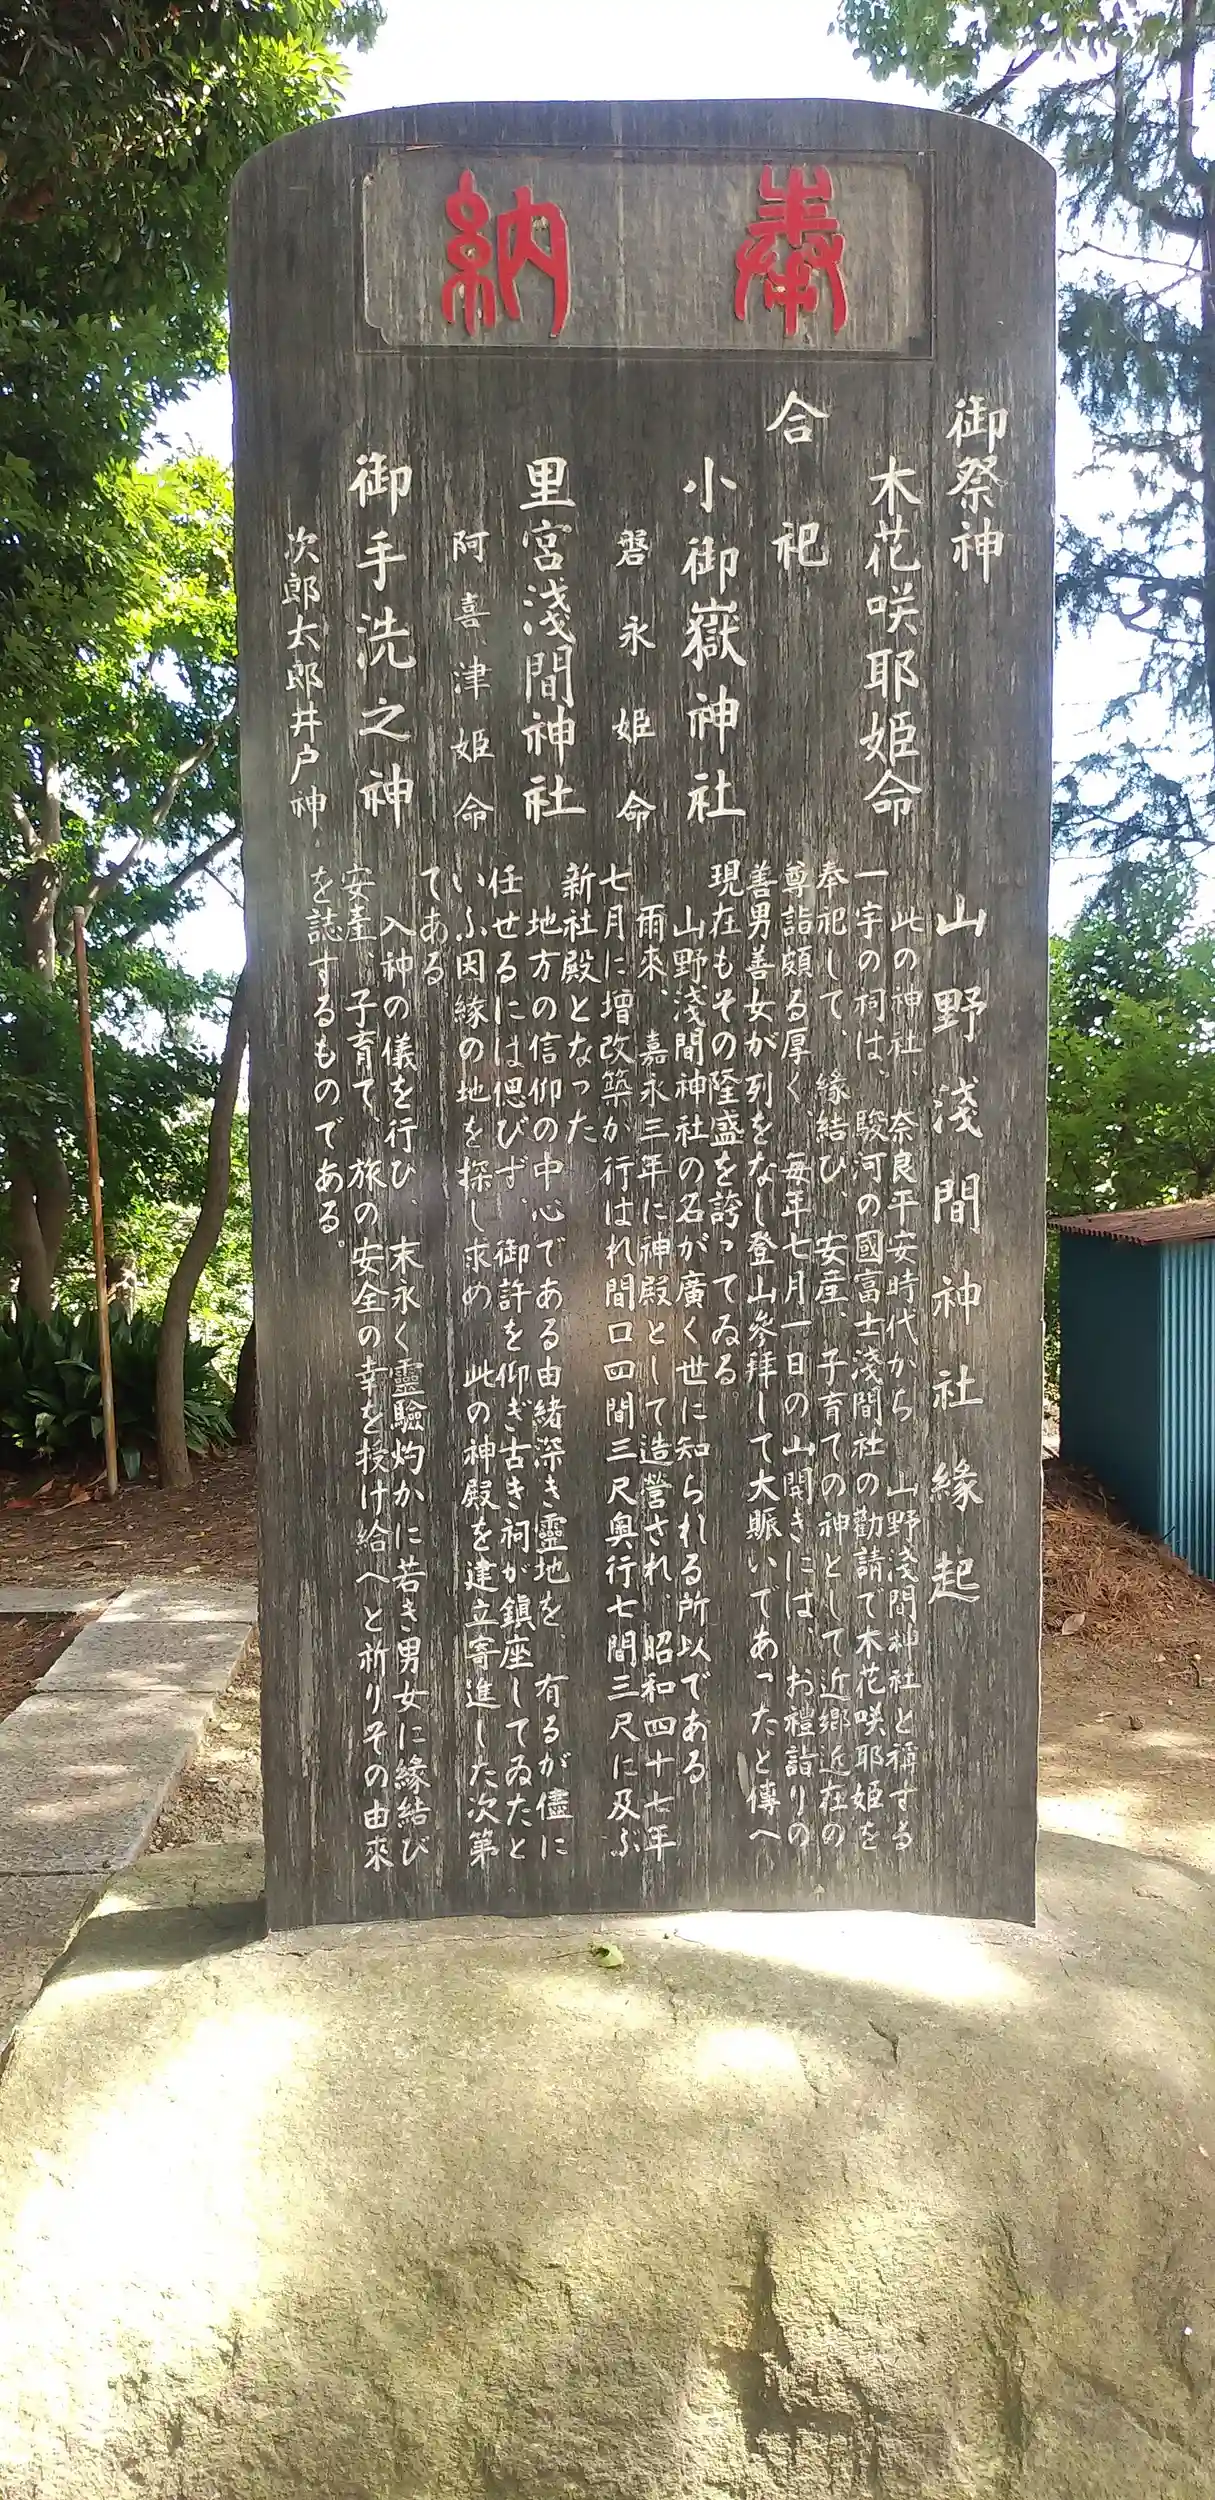 奉納
御祭神
木花咲耶姫命
合祀
小御嶽神社
磐永姫命
里宮淺間神社
阿喜津姫命
御手洗之神
次郎太郎井戸神
山野淺間神社緣起
此の神社、奈良平安時代から 山野淺間神社と稱する
一宇の祠は、駿河の國富士淺間社の勸請で木花咲耶姫を
奉祀して、緣結び、安産、子育ての神として近鄉近在の
尊詣頗る厚く、毎年七月一日の山開きには、お禮詣りの
善男善女が列をなし登山參拜して大賑いであったと傳へ
現在もその隆盛を誇ってゐる。
山野淺間神社の名が廣く世に知られる所以である
雨來、嘉永三年に神殿として造営され、昭和四十七年
七月に增改築が行はれ間口四間三尺奥行七間三尺に及ぶ
新社殿となった
地方の信仰の中心である由緒深き靈地を、有るが儘に
任せるには偲びず、御許を仰ぎ古き祠が鎭座してゐたと
いふ因緣の地を探し求め 此の神殿を建立寄進した次第
である
入神の儀を行ひ、末永く靈驗灼かに若き男女に緣結び
安産、子育て、旅の安全の幸を授け給へと祈りその由來
を誌するものである。